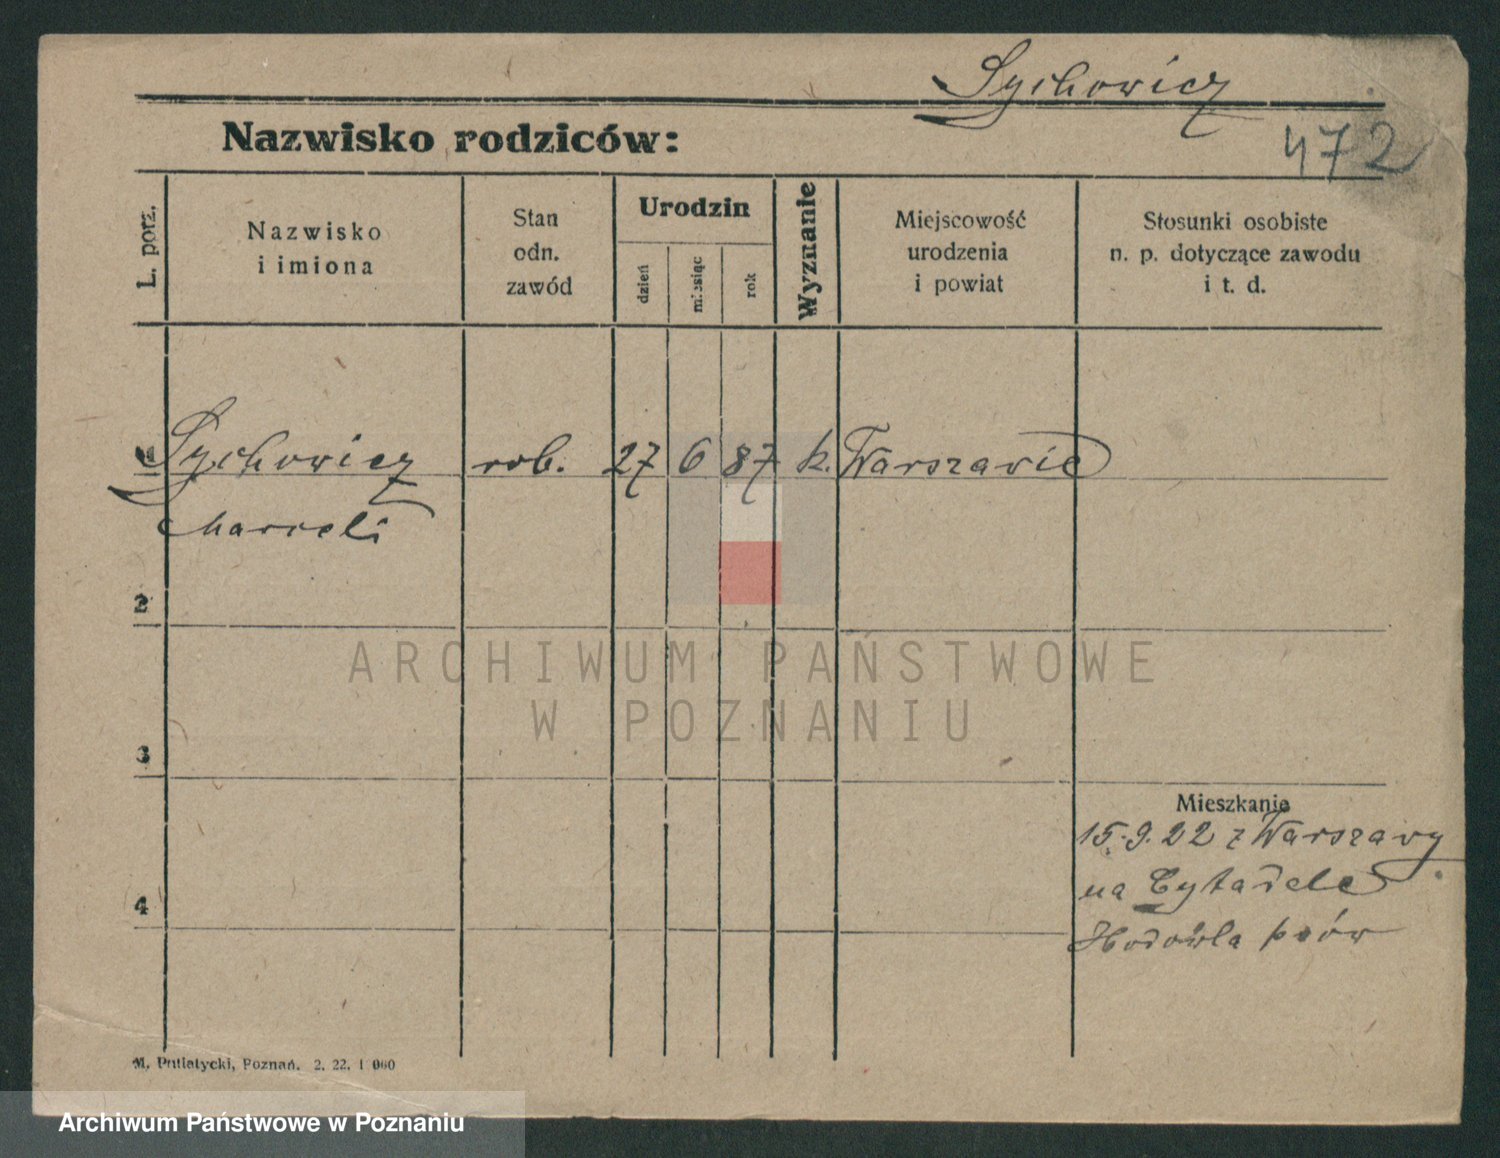 Sychowicz
472
Nazwisko rodziców:
L. porz.
Nazwisko
i imiona
Stan
odn.
zawód
Urodzin
dzień
miesiąc
rok
Wyznanie
Miejscowość
urodzenia
i powiat
Stosunki osobiste
n. p. dotyczące zawodu
i t. d.
1
Sychowicz rob. 27 6 87 k. Warszawie
Marceli
2
ARCHIWUM PAŃSTWOWE
W POZNANIU
3
Mieszkanie
15.9.22 z Warszawy
na Cytadele
4
Hodowla psów
M. Putiatycki, Poznań. 2. 22. 1 000
Archiwum Państwowe w Poznaniu